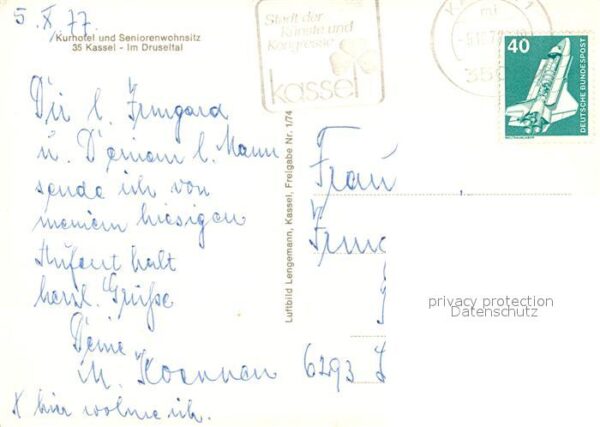 5. X 77.
Kurhotel und Seniorenwohnsitz
35 Kassel - Im Druseltal
Stadt der
Künste und
Kongresse
kassel
40
DEUTSCHE BUNDESPOST
Dir l. Irmgard
u. Deinem l. Mann
sende ich von
meinem hiesigen
Aufent halt
herzl. Grüße
Deine
M.
X hier wohne ich.
Luftbild Lengemann, Kassel, Freigabe Nr. 1/74
Frau
6293
privacy protection
Datenschutz